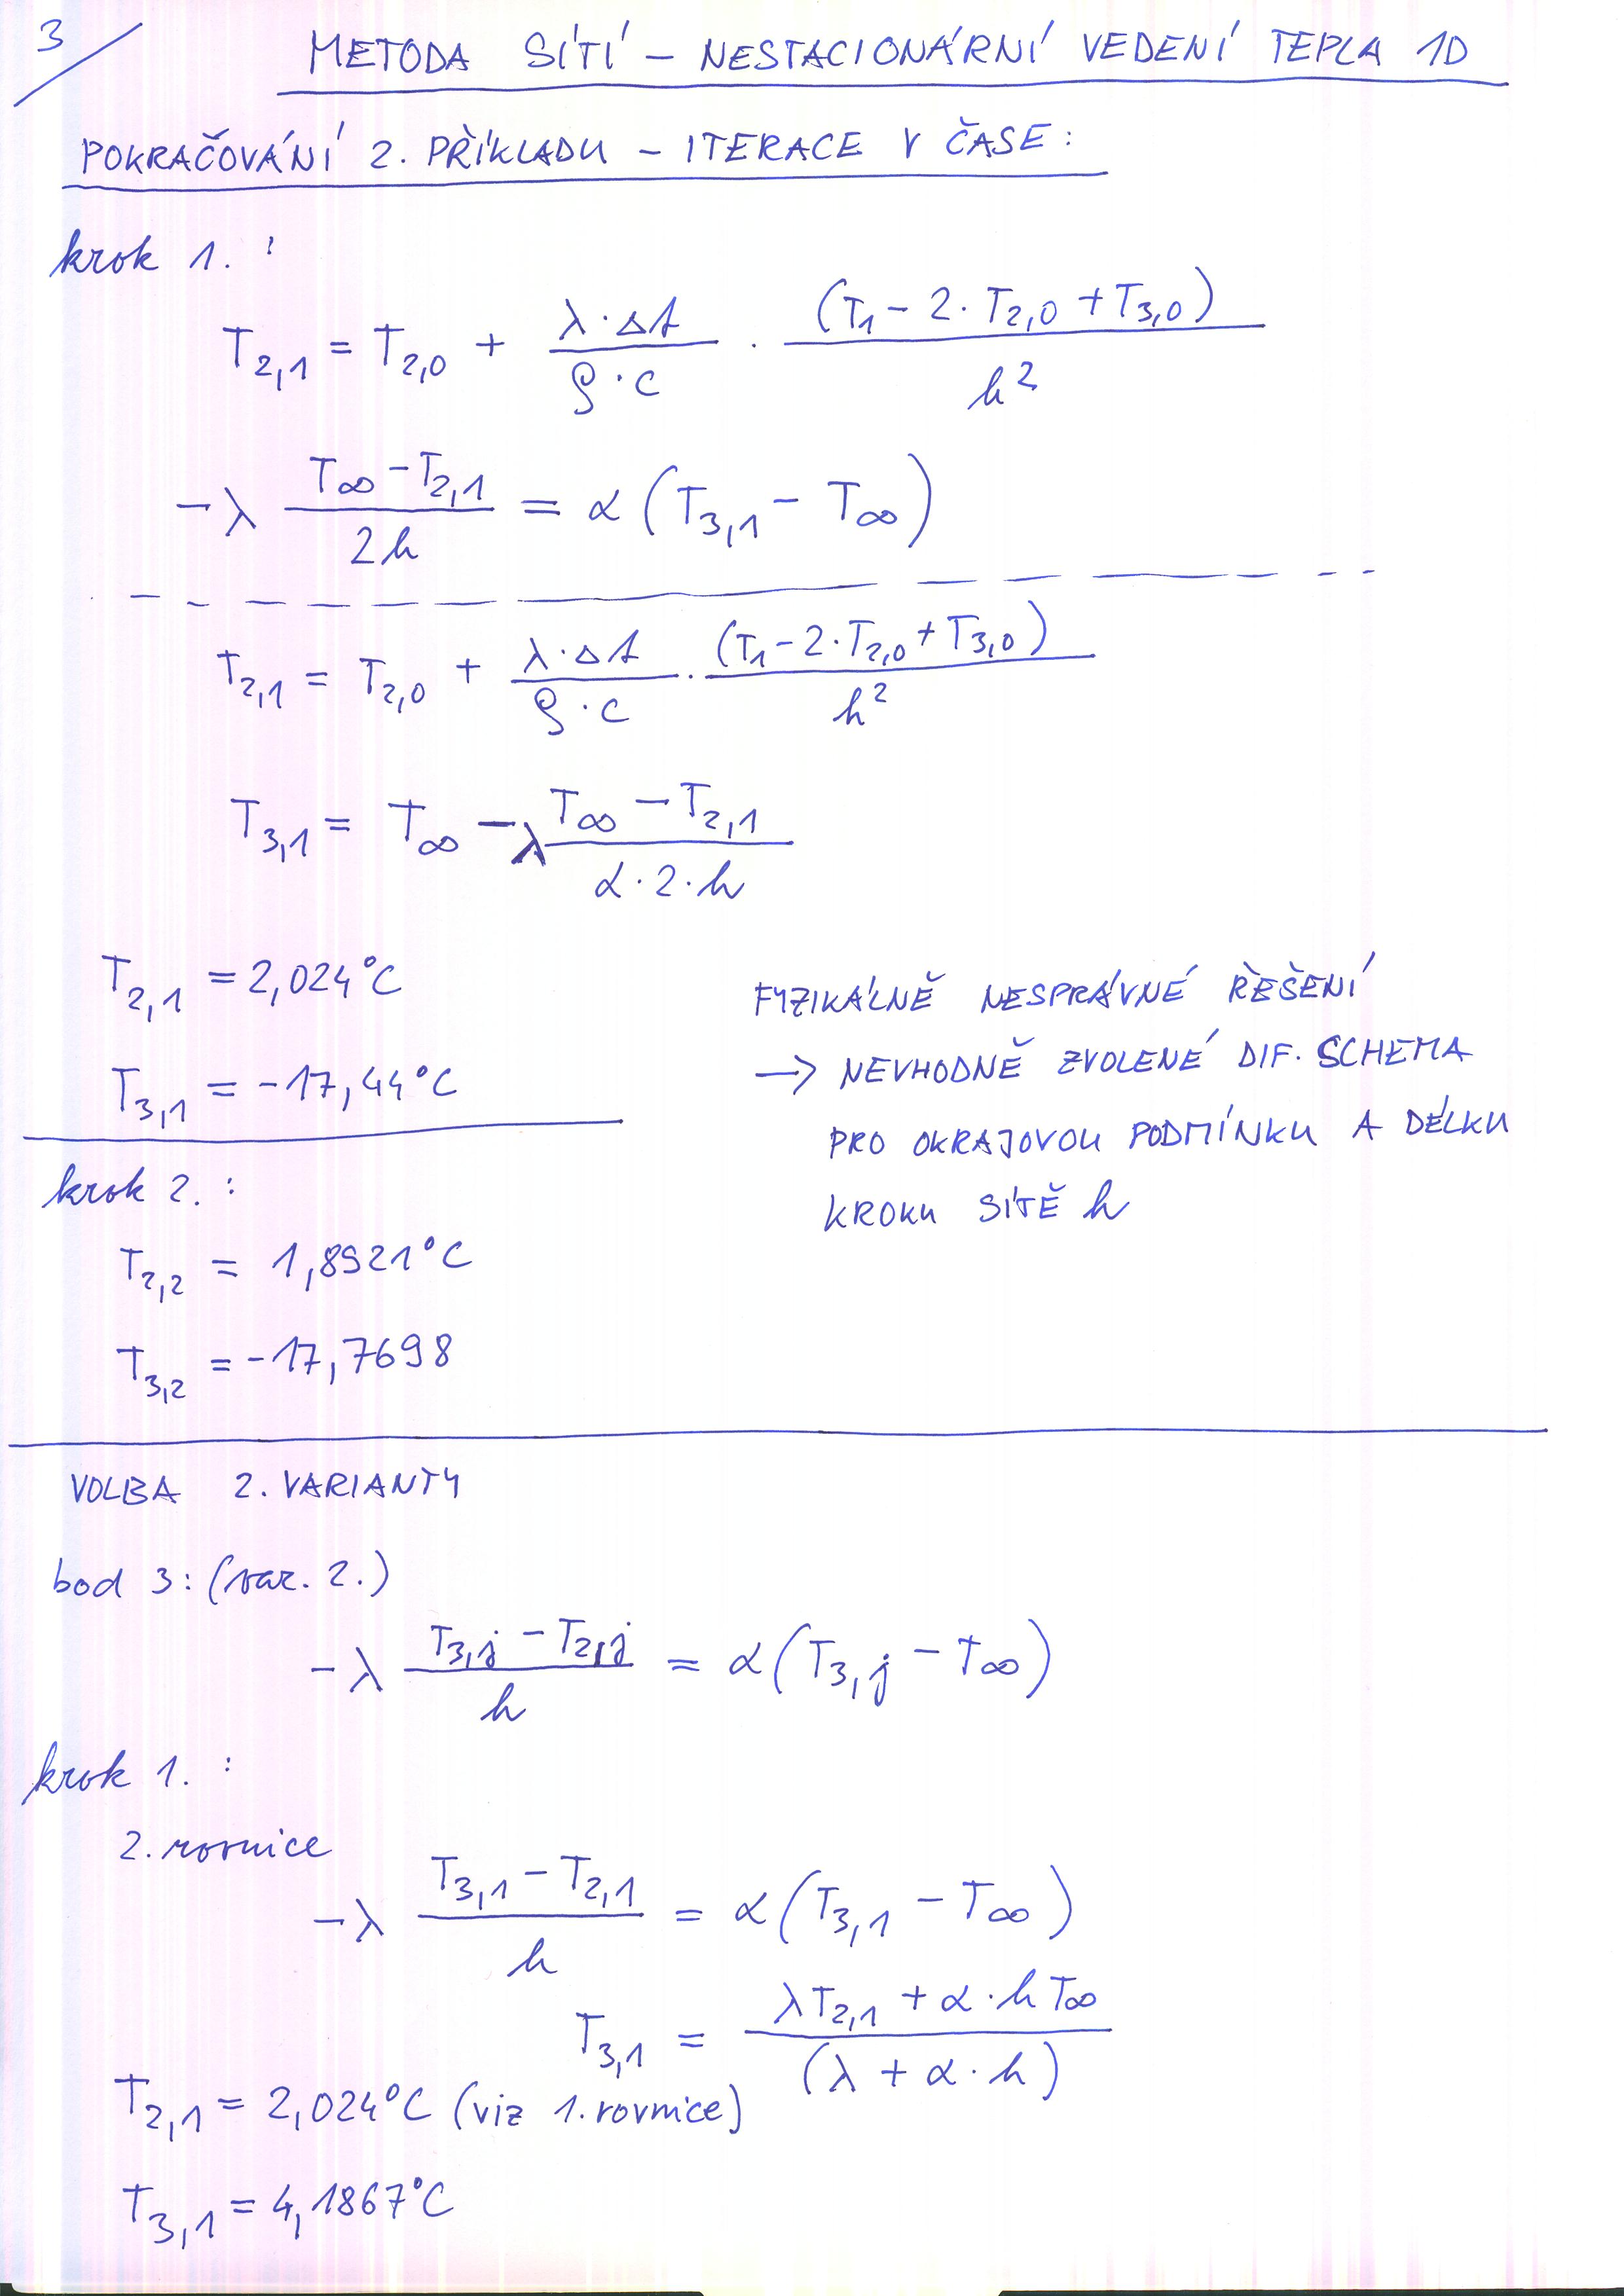 3
METODA SÍTÍ – NESTACIONÁRNÍ VEDENÍ TEPLA 1D
POKRAČOVÁNÍ 2. PŘÍKLADU – ITERACE V ČASE:
krok 1. :
T₂,₁ = T₂,₀ + (λ·Δt)/(ρ·c) · (T₁ - 2·T₂,₀ + T₃,₀)/h²
-λ (T∞ - T₂,₁)/(2h) = α (T₃,₁ - T∞)
T₂,₁ = T₂,₀ + (λ·Δt)/(ρ·c) · (T₁ - 2·T₂,₀ + T₃,₀)/h²
T₃,₁ = T∞ - λ (T∞ - T₂,₁)/(α·2·h)
T₂,₁ = 2,024°C
T₃,₁ = -17,44°C
FYZIKÁLNĚ NESPRÁVNÉ ŘEŠENÍ
→ NEVHODNĚ ZVOLENÉ DIF. SCHEMA
PRO OKRAJOVOU PODMÍNKU A DÉLKU
KROKU SÍTĚ h
krok 2. :
T₂,₂ = 1,8921°C
T₃,₂ = -17,7698
VOLBA 2. VARIANTY
bod 3: (var. 2.)
-λ (T₃,j - T₂,j)/h = α (T₃,j - T∞)
krok 1. :
2. rovnice
-λ (T₃,₁ - T₂,₁)/h = α (T₃,₁ - T∞)
T₃,₁ = (λT₂,₁ + α·h T∞)/(λ + α·h)
T₂,₁ = 2,024°C (viz 1. rovnice)
T₃,₁ = 4,1867°C